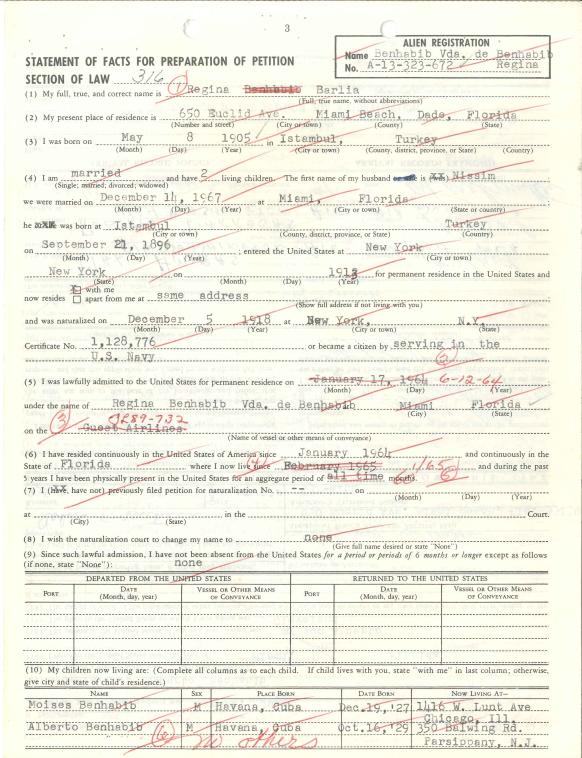 3
ALIEN REGISTRATION
Name Benhabib Vda. de Benhabib
Regina
No. A-13-323-672
STATEMENT OF FACTS FOR PREPARATION OF PETITION
SECTION OF LAW 316
(1) My full, true, and correct name is (1) Regina Benhabib Barlia
(Full, true name, without abbreviations)
(2) My present place of residence is 650 Euclid Ave. Miami Beach, Dade, Florida
(Number and street) (City or town) (County) (State)
(3) I was born on May 8 1905 in Istambul, Turkey
(Month) (Day) (Year) (City or town) (County, district, province, or state) (Country)
(4) I am married and have 2 living children. The first name of my husband is Nissim
(Single; married; divorced; widowed)
we were married on December 14, 1967 at Miami, Florida
(Month) (Day) (Year) (City or town) (State or country)
he was born at Istambul Turkey
(City or town) (County, district, province, or State) (Country)
on September 21, 1896 ; entered the United States at New York
(Month) (Day) (Year) (City or town)
New York on 1913 for permanent residence in the United States and
(State) (Month) (Day) (Year)
now resides X with me
apart from me at same address
(Show full address if not living with you)
and was naturalized on December 5 1918 at New York, N.Y.
(Month) (Day) (Year) (City or town) (State)
Certificate No. 1,128,776 or became a citizen by serving in the
U.S. Navy (2)
(5) I was lawfully admitted to the United States for permanent residence on January 17, 1964 6-12-64
(Month) (Day) (Year)
under the name of Regina Benhabib Vda. de Benhabib Miami Florida
(City) (State)
on the (3) Guest Airlines
(Name of vessel or other means of conveyance)
(6) I have resided continuously in the United States of America since January 1964 and continuously in the
State of Florida where I now live since February 1965 and during the past
5 years I have been physically present in the United States for an aggregate period of all time months.
(7) I (have, have not) previously filed petition for naturalization No. -- on
(Month) (Day) (Year)
at in the Court.
(City) (State)
(8) I wish the naturalization court to change my name to none
(Give full name desired or state "None")
(9) Since such lawful admission, I have not been absent from the United States for a period or periods of 6 months or longer except as follows
(if none, state "None"): none
DEPARTED FROM THE UNITED STATES RETURNED TO THE UNITED STATES
PORT DATE (Month, day, year) VESSEL OR OTHER MEANS OF CONVEYANCE PORT DATE (Month, day, year) VESSEL OR OTHER MEANS OF CONVEYANCE
(10) My children now living are: (Complete all columns as to each child. If child lives with you, state "with me" in last column; otherwise,
give city and state of child's residence.)
NAME SEX PLACE BORN DATE BORN NOW LIVING AT—
Moises Benhabib M Havana, Cuba Dec.19,'27 1416 W. Lunt Ave
Chicago, Ill.
Alberto Benhabib (6) M Havana, Cuba Oct.16,'29 350 Balwing Rd.
no others Parsippany, N.J.